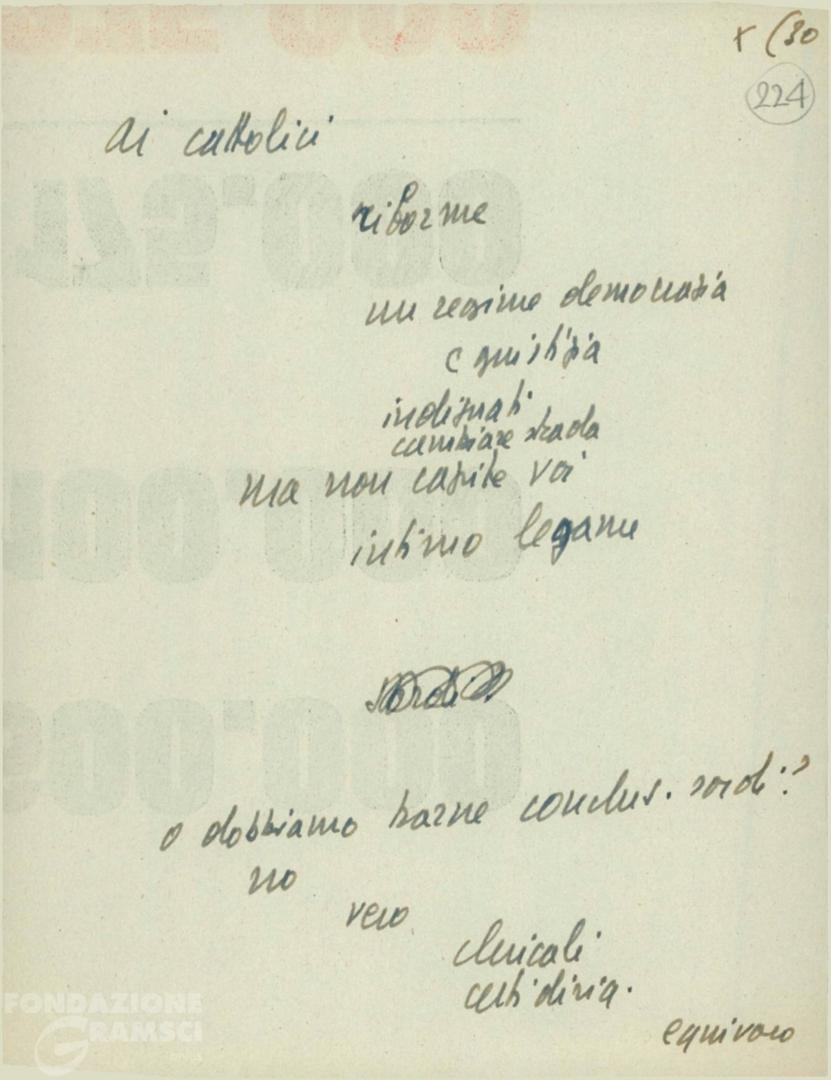 x (30
224
Ai cattolici
riforme
un regime democrazia
e giustizia
indignati
cambiare strada
ma non capite voi
intimo legame
sordi
o dobbiamo trarne conclus. sordi?
no
vero
clericali
certi dirig.
equivoco
FONDAZIONE
GRAMSCI